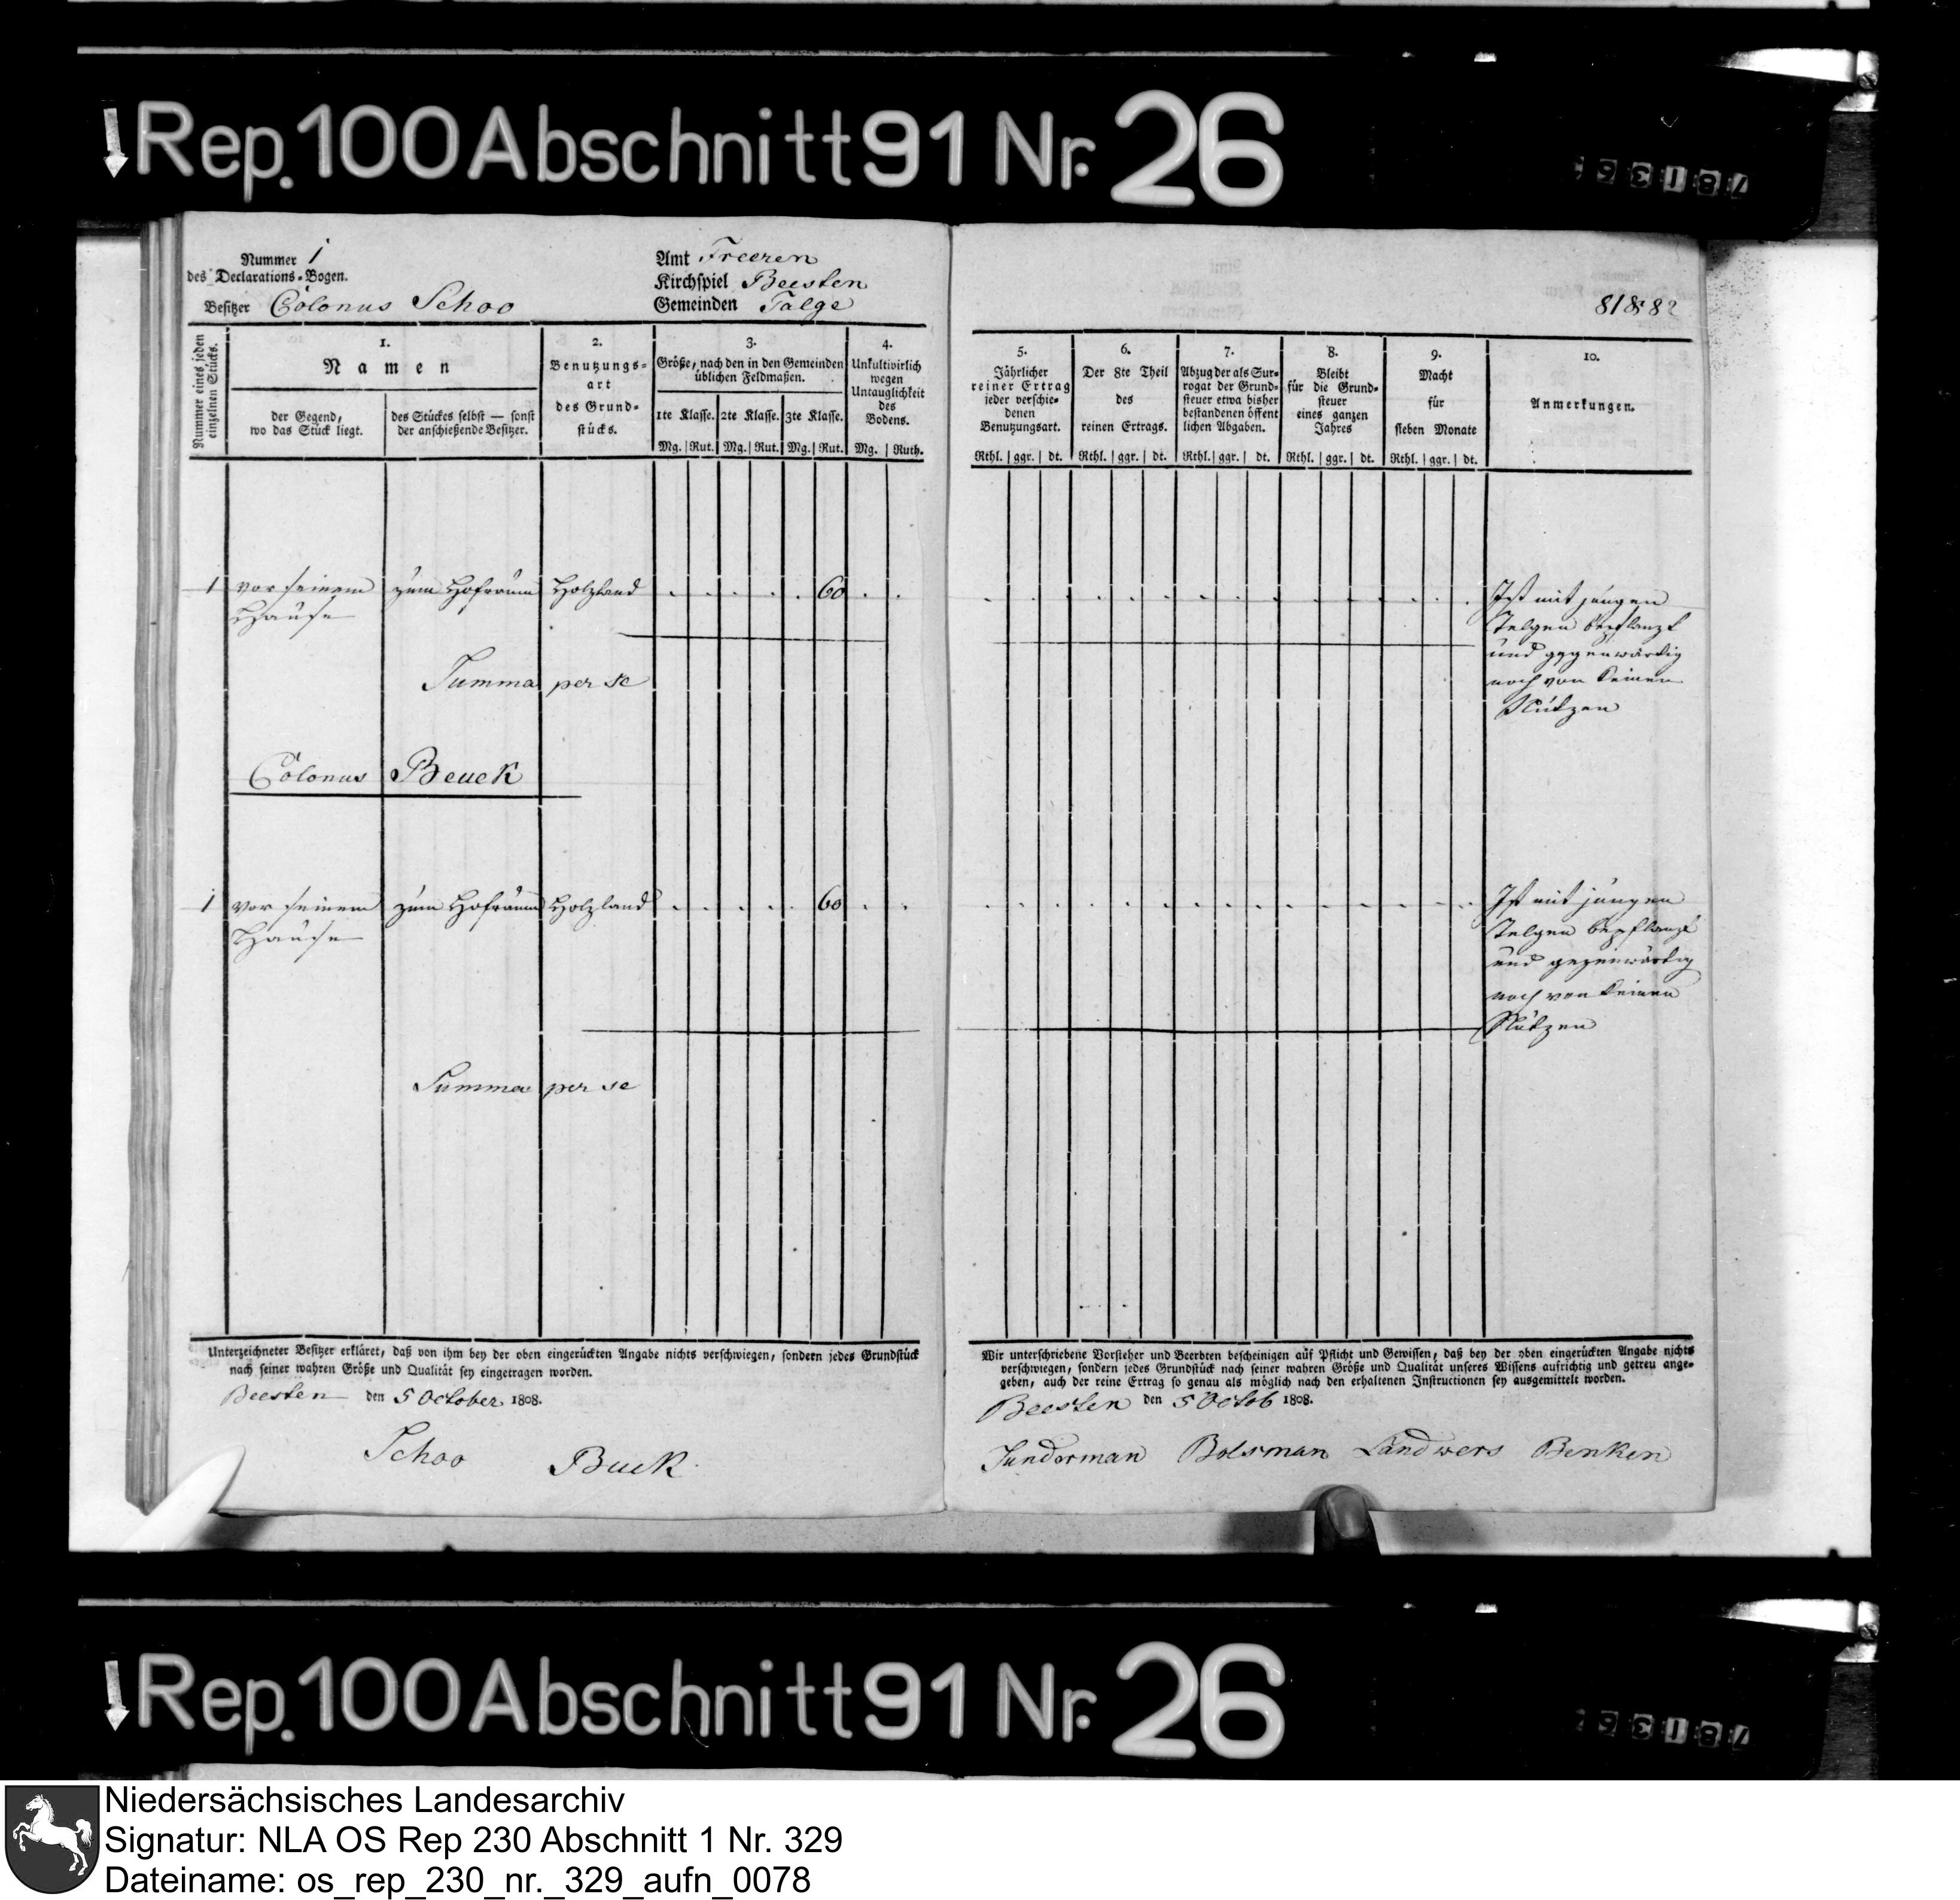 Rep. 100 Abschnitt 91 Nr. 26
Nummer 1
des Declarations-Bogen.
Besitzer Colonus Schoo
Amt Freeren
Kirchspiel Beesten
Gemeinden Talge
Nummer eines jeden
einzelnen Stücks.
1.
Namen
der Gegend,
wo das Stück liegt.
des Stückes selbst — sonst
der anschießende Besitzer.
2.
Benutzungs-
art
des Grund-
stücks.
3.
Größe, nach den in den Gemeinden
üblichen Feldmaßen.
1te Klasse. 2te Klasse. 3te Klasse.
Mg. Rut. Mg. Rut. Mg. Rut.
4.
Unkultivirlich
wegen
Untauglichkeit
des
Bodens.
Mg. Ruth.
1 vor seinem zum Hofraum Holzland 60
Hause
Summa per se
Colonus Beuck
1 vor seinem zum Hofraum Holzland 60
Hause
Summa per se
Unterzeichneter Besitzer erkläret, daß von ihm bey der oben eingerückten Angabe nichts verschwiegen, sondern jedes Grundstück
nach seiner wahren Größe und Qualität sey eingetragen worden.
Beesten den 5 October 1808.
Schoo Buck
81 & 82
5.
Jährlicher
reiner Ertrag
jeder verschie-
denen
Benutzungsart.
Rthl. ggr. dt.
6.
Der 8te Theil
des
reinen Ertrags.
Rthl. ggr. dt.
7.
Abzug der als Sur-
rogat der Grund-
steuer etwa bisher
bestandenen öffent
lichen Abgaben.
Rthl. ggr. dt.
8.
Bleibt
für die Grund-
steuer
eines ganzen
Jahres
Rthl. ggr. dt.
9.
Macht
für
sieben Monate
Rthl. ggr. dt.
10.
Anmerkungen.
Ist mit jungen
Telgen bepflanzt
und gegenwärtig
noch von keinen
Nutzen
Ist mit jungen
Telgen bepflanzt
und gegenwärtig
noch von keinen
Nutzen
Wir unterschriebene Vorsteher und Beerbten bescheinigen auf Pflicht und Gewissen, daß bey der oben eingerückten Angabe nichts
verschwiegen, sondern jedes Grundstück nach seiner wahren Größe und Qualität unseres Wissens aufrichtig und getreu ange-
geben, auch der reine Ertrag so genau als möglich nach den erhaltenen Instructionen sey ausgemittelt worden.
Beesten den 5 Octob 1808.
Sunderman Bolsman Landwers Benken
Rep. 100 Abschnitt 91 Nr. 26
Niedersächsisches Landesarchiv
Signatur: NLA OS Rep 230 Abschnitt 1 Nr. 329
Dateiname: os_rep_230_nr._329_aufn_0078